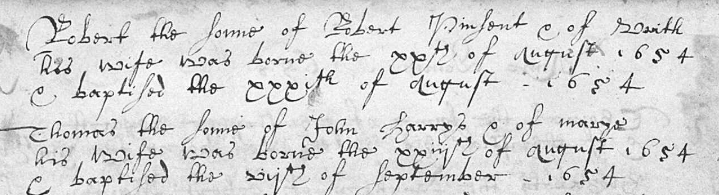 Robert the sonne of Robert Pinsent & of Wilth
his wife was borne the xxth of August 1654
& baptised the xxxith of August - 1654
Thomas the sonne of John Harrys & of marye
his wife was borne the xxiijth of August 1654
& baptised the vijth of September - 1654